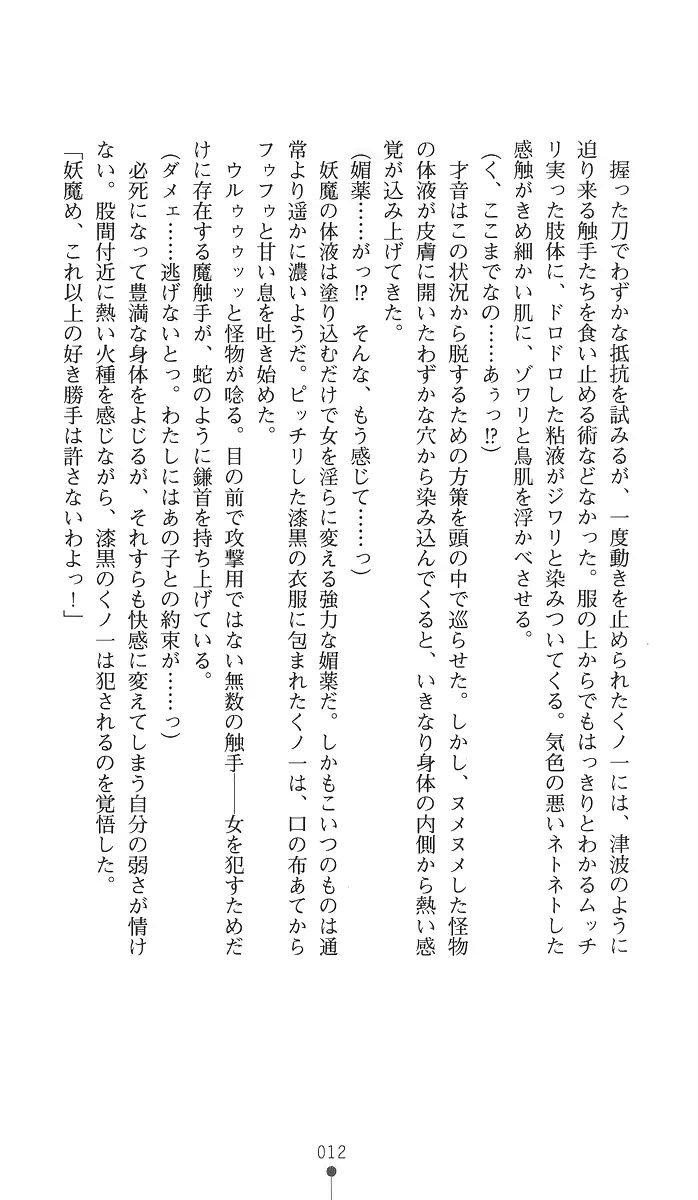 握った刀でわずかな抵抗を試みるが、一度動きを止められたくノ一には、津波のように
迫り来る触手たちを食い止める術などなかった。服の上からでもはっきりとわかるムッチ
リ実った肢体に、ドロドロした粘液がジワリと染みついてくる。気色の悪いネトネトした
感触がきめ細かい肌に、ゾワリと鳥肌を浮かべさせる。
(く、ここまでなの……あぅっ!?)
才音はこの状況から脱するための方策を頭の中で巡らせた。しかし、ヌメヌメした怪物
の体液が皮膚に開いたわずかな穴から染み込んでくると、いきなり身体の内側から熱い感
覚が込み上げてきた。
(媚薬……がっ!? そんな、もう感じて……っ)
妖魔の体液は塗り込むだけで女を淫らに変える強力な媚薬だ。しかもこいつのものは通
常より遥かに濃いようだ。ピッチリした漆黒の衣服に包まれたくノ一は、口の布あてから
フゥフゥと甘い息を吐き始めた。
ウルゥゥゥッッと怪物が唸る。目の前で攻撃用ではない無数の触手――女を犯すためだ
けに存在する魔触手が、蛇のように鎌首を持ち上げている。
(ダメェ……逃げないとっ。わたしにはあの子との約束が……っ)
必死になって豊満な身体をよじるが、それすらも快感に変えてしまう自分の弱さが情け
ない。股間付近に熱い火種を感じながら、漆黒のくノ一は犯されるのを覚悟した。
「妖魔め、これ以上の好き勝手は許さないわよっ！」
012